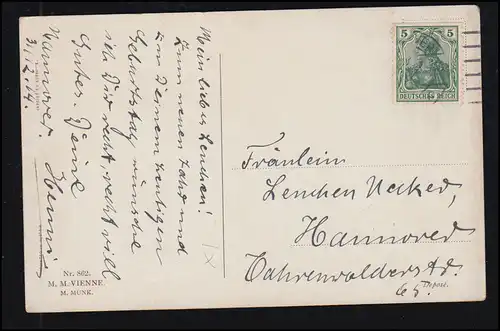 Mein liebes Lenchen!
Zum neuen Jahr und
zu Deinem heutigen
Geburtstag wünsche
ich Dir recht recht viel
Gutes. Deine
Henni
Hannover.
31.12.14.
Nr. 862.
M. M. VIENNE.
M. MUNK.
5 5
DEUTSCHES REICH
Fräulein
Lenchen Uecker,
Hannover
Vahrenwalderstr.
65.
Deposé.